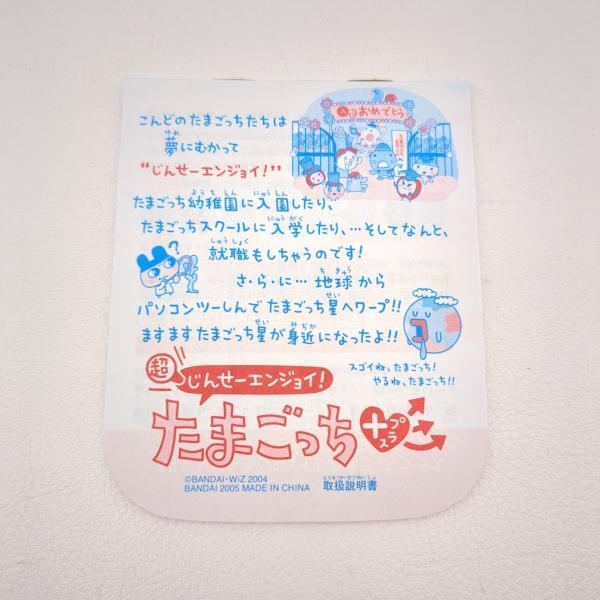 入園おめでとう
こんどのたまごっちたちは
夢にむかって
“じんせーエンジョイ!”
たまごっち幼稚園に入園したり、
たまごっちスクールに入学したり、…そしてなんと、
就職もしちゃうのです!
さ・ら・に… 地球から
パソコンツーしんでたまごっち星へワープ!!
ますますたまごっち星が身近になったよ!!
スゴイね、たまごっち!
やるね、たまごっち!!
超じんせーエンジョイ!
たまごっち
+プラス
©BANDAI・WiZ 2004
BANDAI 2005 MADE IN CHINA
取扱説明書